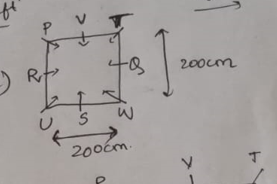 P V T
R Q 200cm
U S W
200cm.
V T
P